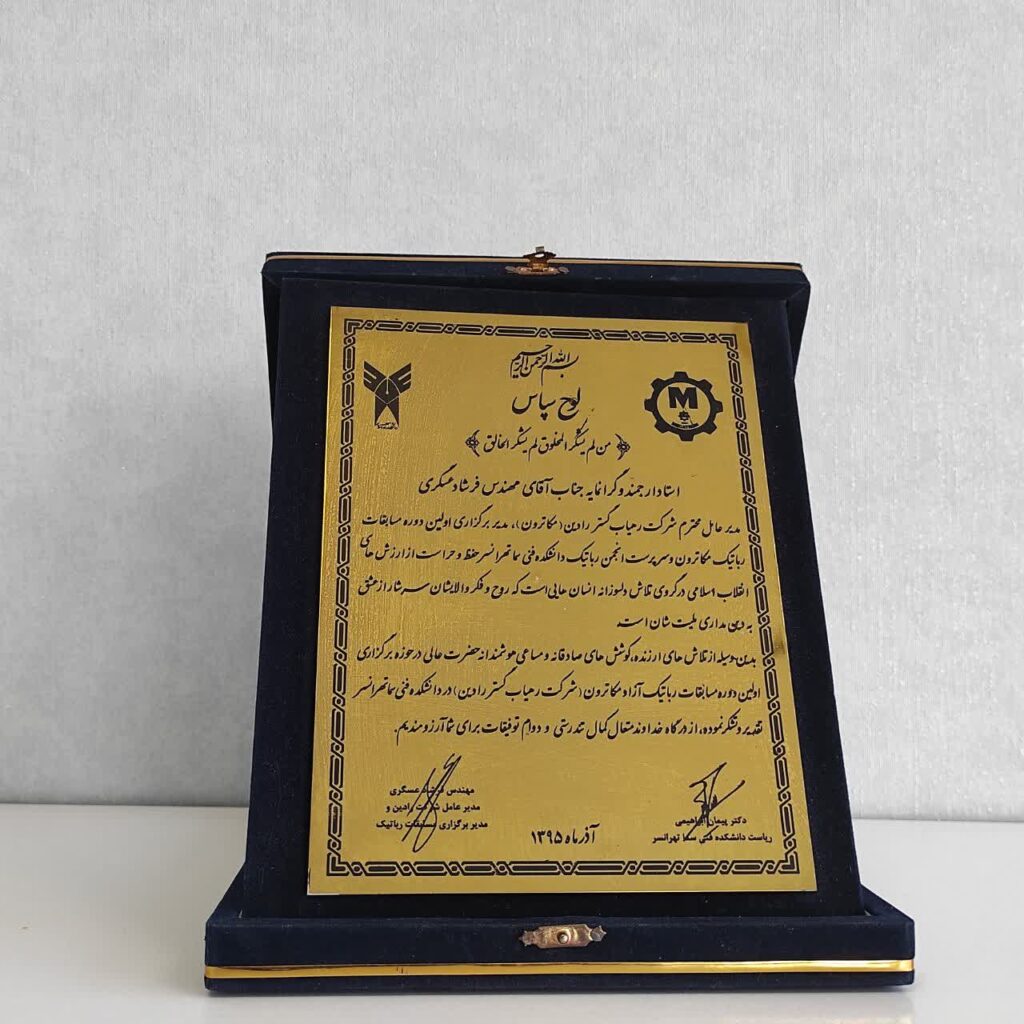 بسم الله الرحمن الرحیم
لوح سپاس
M
من لم یشکر المخلوق لم یشکر الخالق
استاد ارجمند و گرانمایه جناب آقای مهندس فرشاد عسگری
مدیر عامل محترم شرکت رهیاب گستر رادین (مکاترون)، مدیر برگزاری اولین دوره مسابقات
رباتیک مکاترون و سرپرست انجمن رباتیک دانشکده فنی سما تهرانسر حفظ و حراست از ارزش های
انقلاب اسلامی در گروی تلاش دلسوزانه انسان هایی است که روح و فکر والایشان سرشار از عشق
به دین مداری ملیت شان است
بدین وسیله از تلاش های ارزنده، کوشش های صادقانه و مساعی هوشمندانه حضرت عالی در حوزه برگزاری
اولین دوره مسابقات رباتیک آزاد مکاترون (شرکت رهیاب گستر رادین) در دانشکده فنی سما تهرانسر
تقدیر و تشکر نموده، از درگاه خداوند متعال کمال تندرستی و دوام توفیقات برای شما آرزومندیم.
دکتر پیمان ابراهیمی
ریاست دانشکده فنی سما تهرانسر
آذر ماه ۱۳۹۵
مهندس فرشاد عسگری
مدیر عامل شرکت رادین و
مدیر برگزاری مسابقات رباتیک